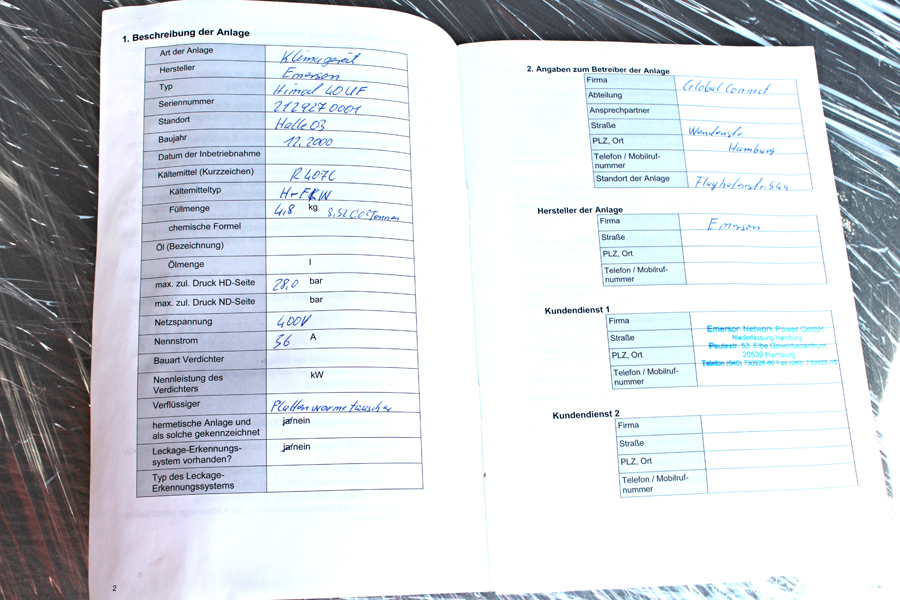 1. Beschreibung der Anlage
Art der Anlage Klimagerät
Hersteller Emerson
Typ Himod 40UF
Seriennummer 2129270001
Standort Halle 03
Baujahr 12.2000
Datum der Inbetriebnahme
Kältemittel (Kurzzeichen) R407C
Kältemitteltyp H-FKW
Füllmenge 4,8 kg 8,52 CO2 Tonnen
chemische Formel
Öl (Bezeichnung)
Ölmenge l
max. zul. Druck HD-Seite 28,0 bar
max. zul. Druck ND-Seite bar
Netzspannung 400V
Nennstrom 56 A
Bauart Verdichter
Nennleistung des kW
Verdichters
Verflüssiger Plattenwärmetauscher
hermetische Anlage und ja/nein
als solche gekennzeichnet
Leckage-Erkennungs- ja/nein
system vorhanden?
Typ des Leckage-
Erkennungssystems
2
2. Angaben zum Betreiber der Anlage
Firma Global Connect
Abteilung
Ansprechpartner
Straße Wendenstr.
PLZ, Ort Hamburg
Telefon / Mobilruf-
nummer
Standort der Anlage
Hersteller der Anlage
Firma Emerson
Straße
PLZ, Ort
Telefon / Mobilruf-
nummer
Kundendienst 1
Firma Emerson Network Power GmbH
Niederlassung Hamburg
Straße Peutestr. 53 Elbe Gewerbezentrum
PLZ, Ort 20539 Hamburg
Telefon / Mobilruf-
nummer
Kundendienst 2
Firma
Straße
PLZ, Ort
Telefon / Mobilruf-
nummer